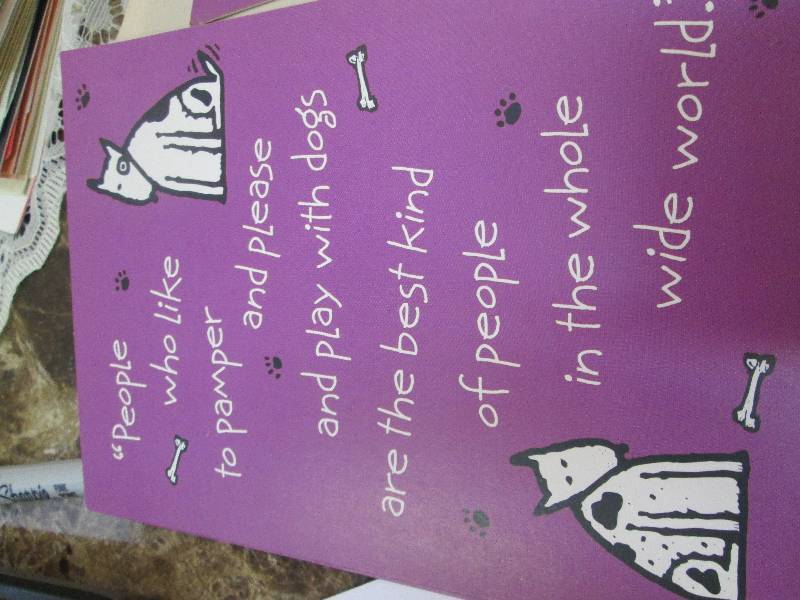 “People
who like
to pamper
and please
and play with dogs
are the best kind
of people
in the whole
wide world.
Sharpie